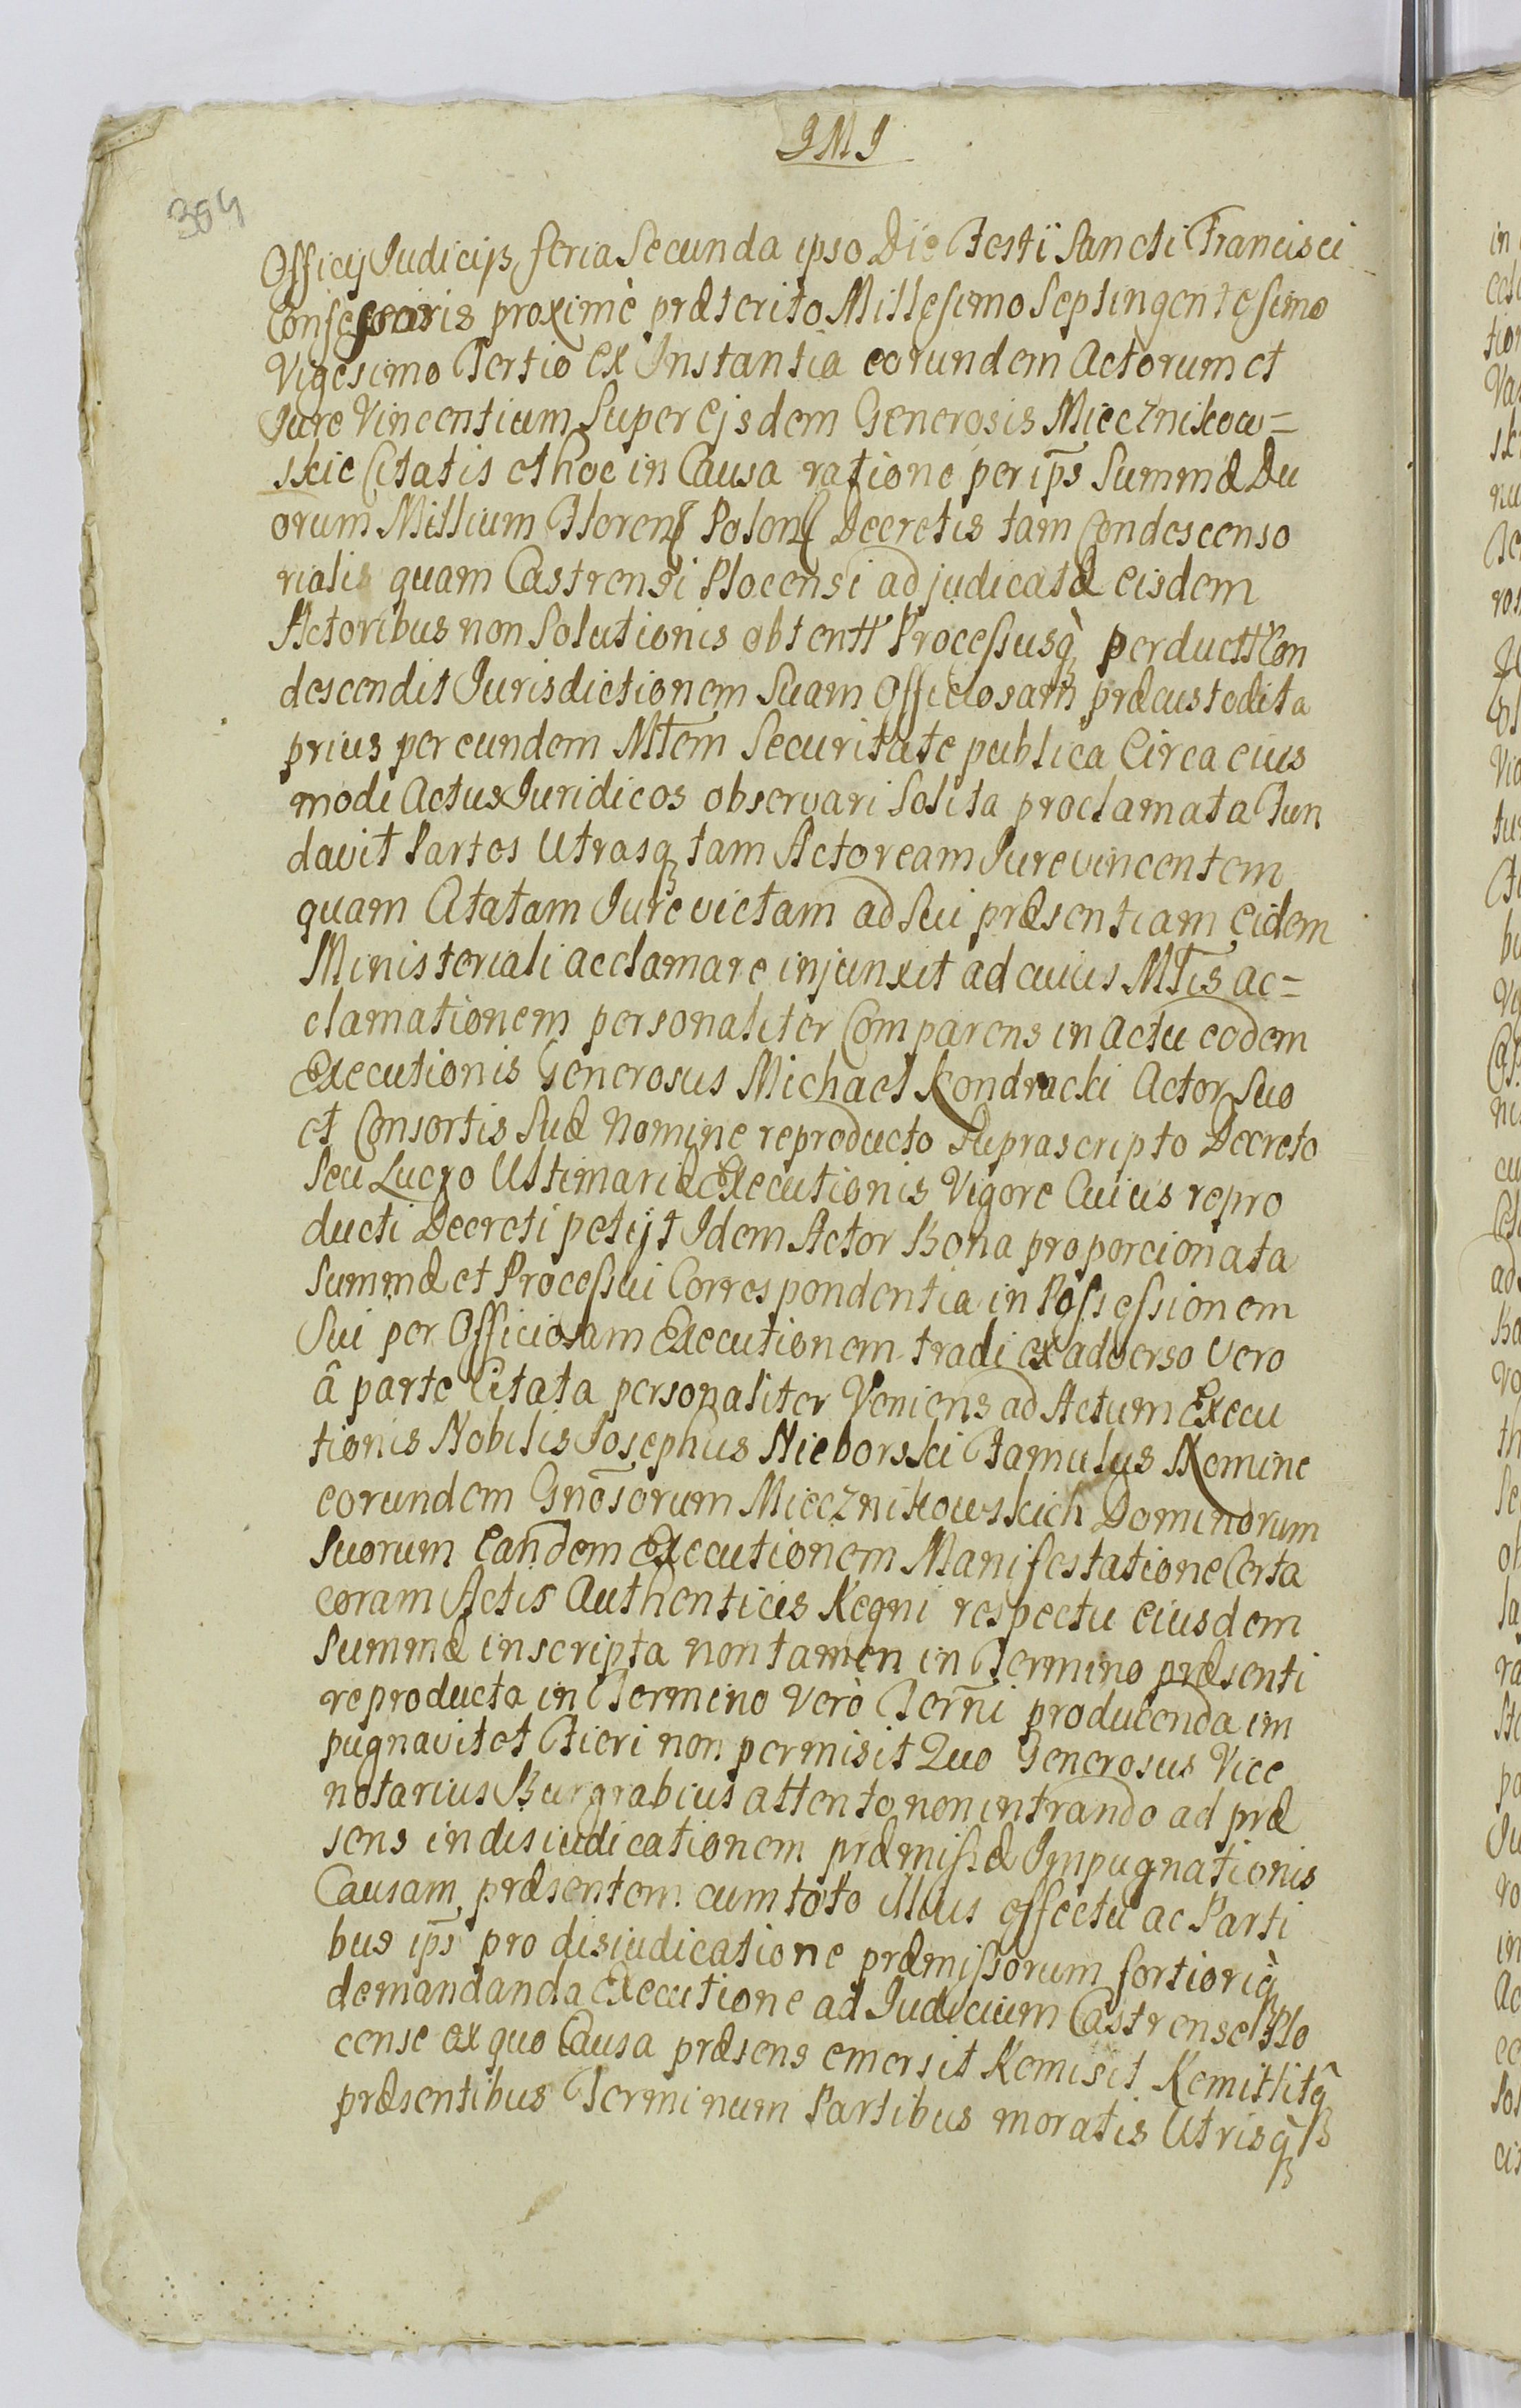 JMJ
304
Officij Judicijs, feria Secunda ipso Die Festi Sancti Francisci
Confessoris proximè præterito Millesimo Septingentesimo
Vigesimo Tertio ex Instantia eorundem Actorum et
Jure Vincentium Super Ejsdem Generosis Miecznikow=
skie Citatis et hoc in Causa ratione per ips Summæ Du
orum Millium Floren Polon Decretis tam Condescenso
rialis quam Castrensi Plocensi adjudicatæ eisdem
Actoribus non Solutionis obtentt Processusq̀ perductt Con
descendit Jurisdictionem Suam Officiosam præcustodita
prius per eundem Mtem Securitate publica Circa eius
modi Actus Juridicos observari Solita proclamata Fun
davit Partes Utrasq tam Actoream Jurevincentem
quam Citatam Jure victam ad Sui præsentiam eidem
Ministeriali acclamare injunxit ad cuius Mtis ac=
clamationem personaliter Comparens in actu eodem
Executionis Generosus Michael Kondracki Actor Suo
et Consortis Suæ Nomine reproducto Suprascripto Decreto
Seu Lucro Ultimariæ Executionis Vigore Cuius repro
ducti Decreti petijt Idem Actor Bona proporcionata
Summæ et Processui Correspondentia in Possessionem
Sui per Officiosam Executionem tradi ex adverso Vero
â parte Citata personaliter Veniens ad Actum Execu
tionis Nobilis Josephus Nieborski Famulus Nomine
eorundem Gnosorum Miecznikowskich Dominorum
Suorum Eandem Executionem Manifestatione Certa
coram Actis Authenticis Regni respectu eiusdem
Summæ inscripta non tamen in Termino præsenti
reproducta in Termino Verò Terñi producenda im
pugnavit et Fieri non permisit Quo Generosus Vice
notarius Burgrabius attento non intrando ad præ
sens in disiudicationem præmissæ Impugnationis
Causam præsentem cum toto illius effectu ac Parti
bus ips pro disiudicatione præmissorum fortioriq̀
demandanda Executione ad Judicium Castrense Plo
cense ex quo Causa præsens emersit Remisit Remittitq̂
præsentibus Terminum Partibus moratis Utrisq̀